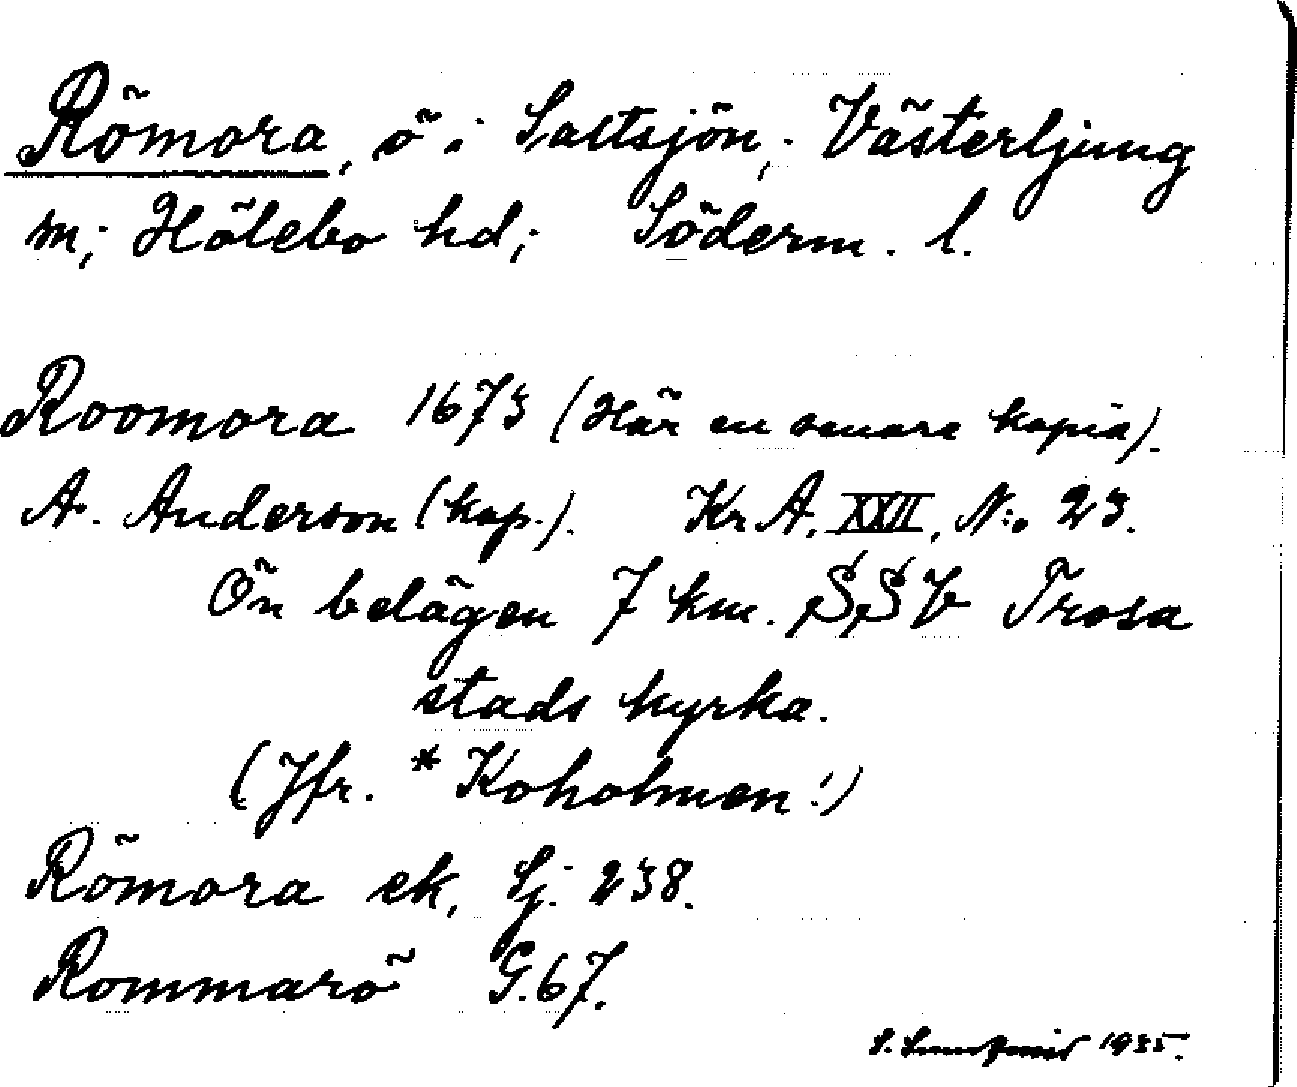 Römora, ö i Saltsjön; Västerljung
sn; Hölebo hd; Söderm. l.
Roomora 1673 (Här en senare kopia).
A. Anderson (kop.). Kr A, XXII, N:o 23.
Ön belägen 7 km. SSV Trosa
stads kyrka.
(Jfr. * Koholmen!)
Römora ek, Sj. 238.
Rommarö G.67.
S. 1935.